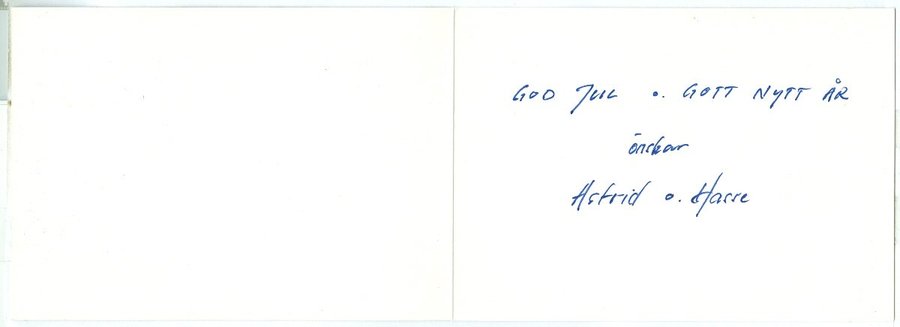 GOD JUL o. GOTT NYTT ÅR
önskar
Astrid o. Hasse